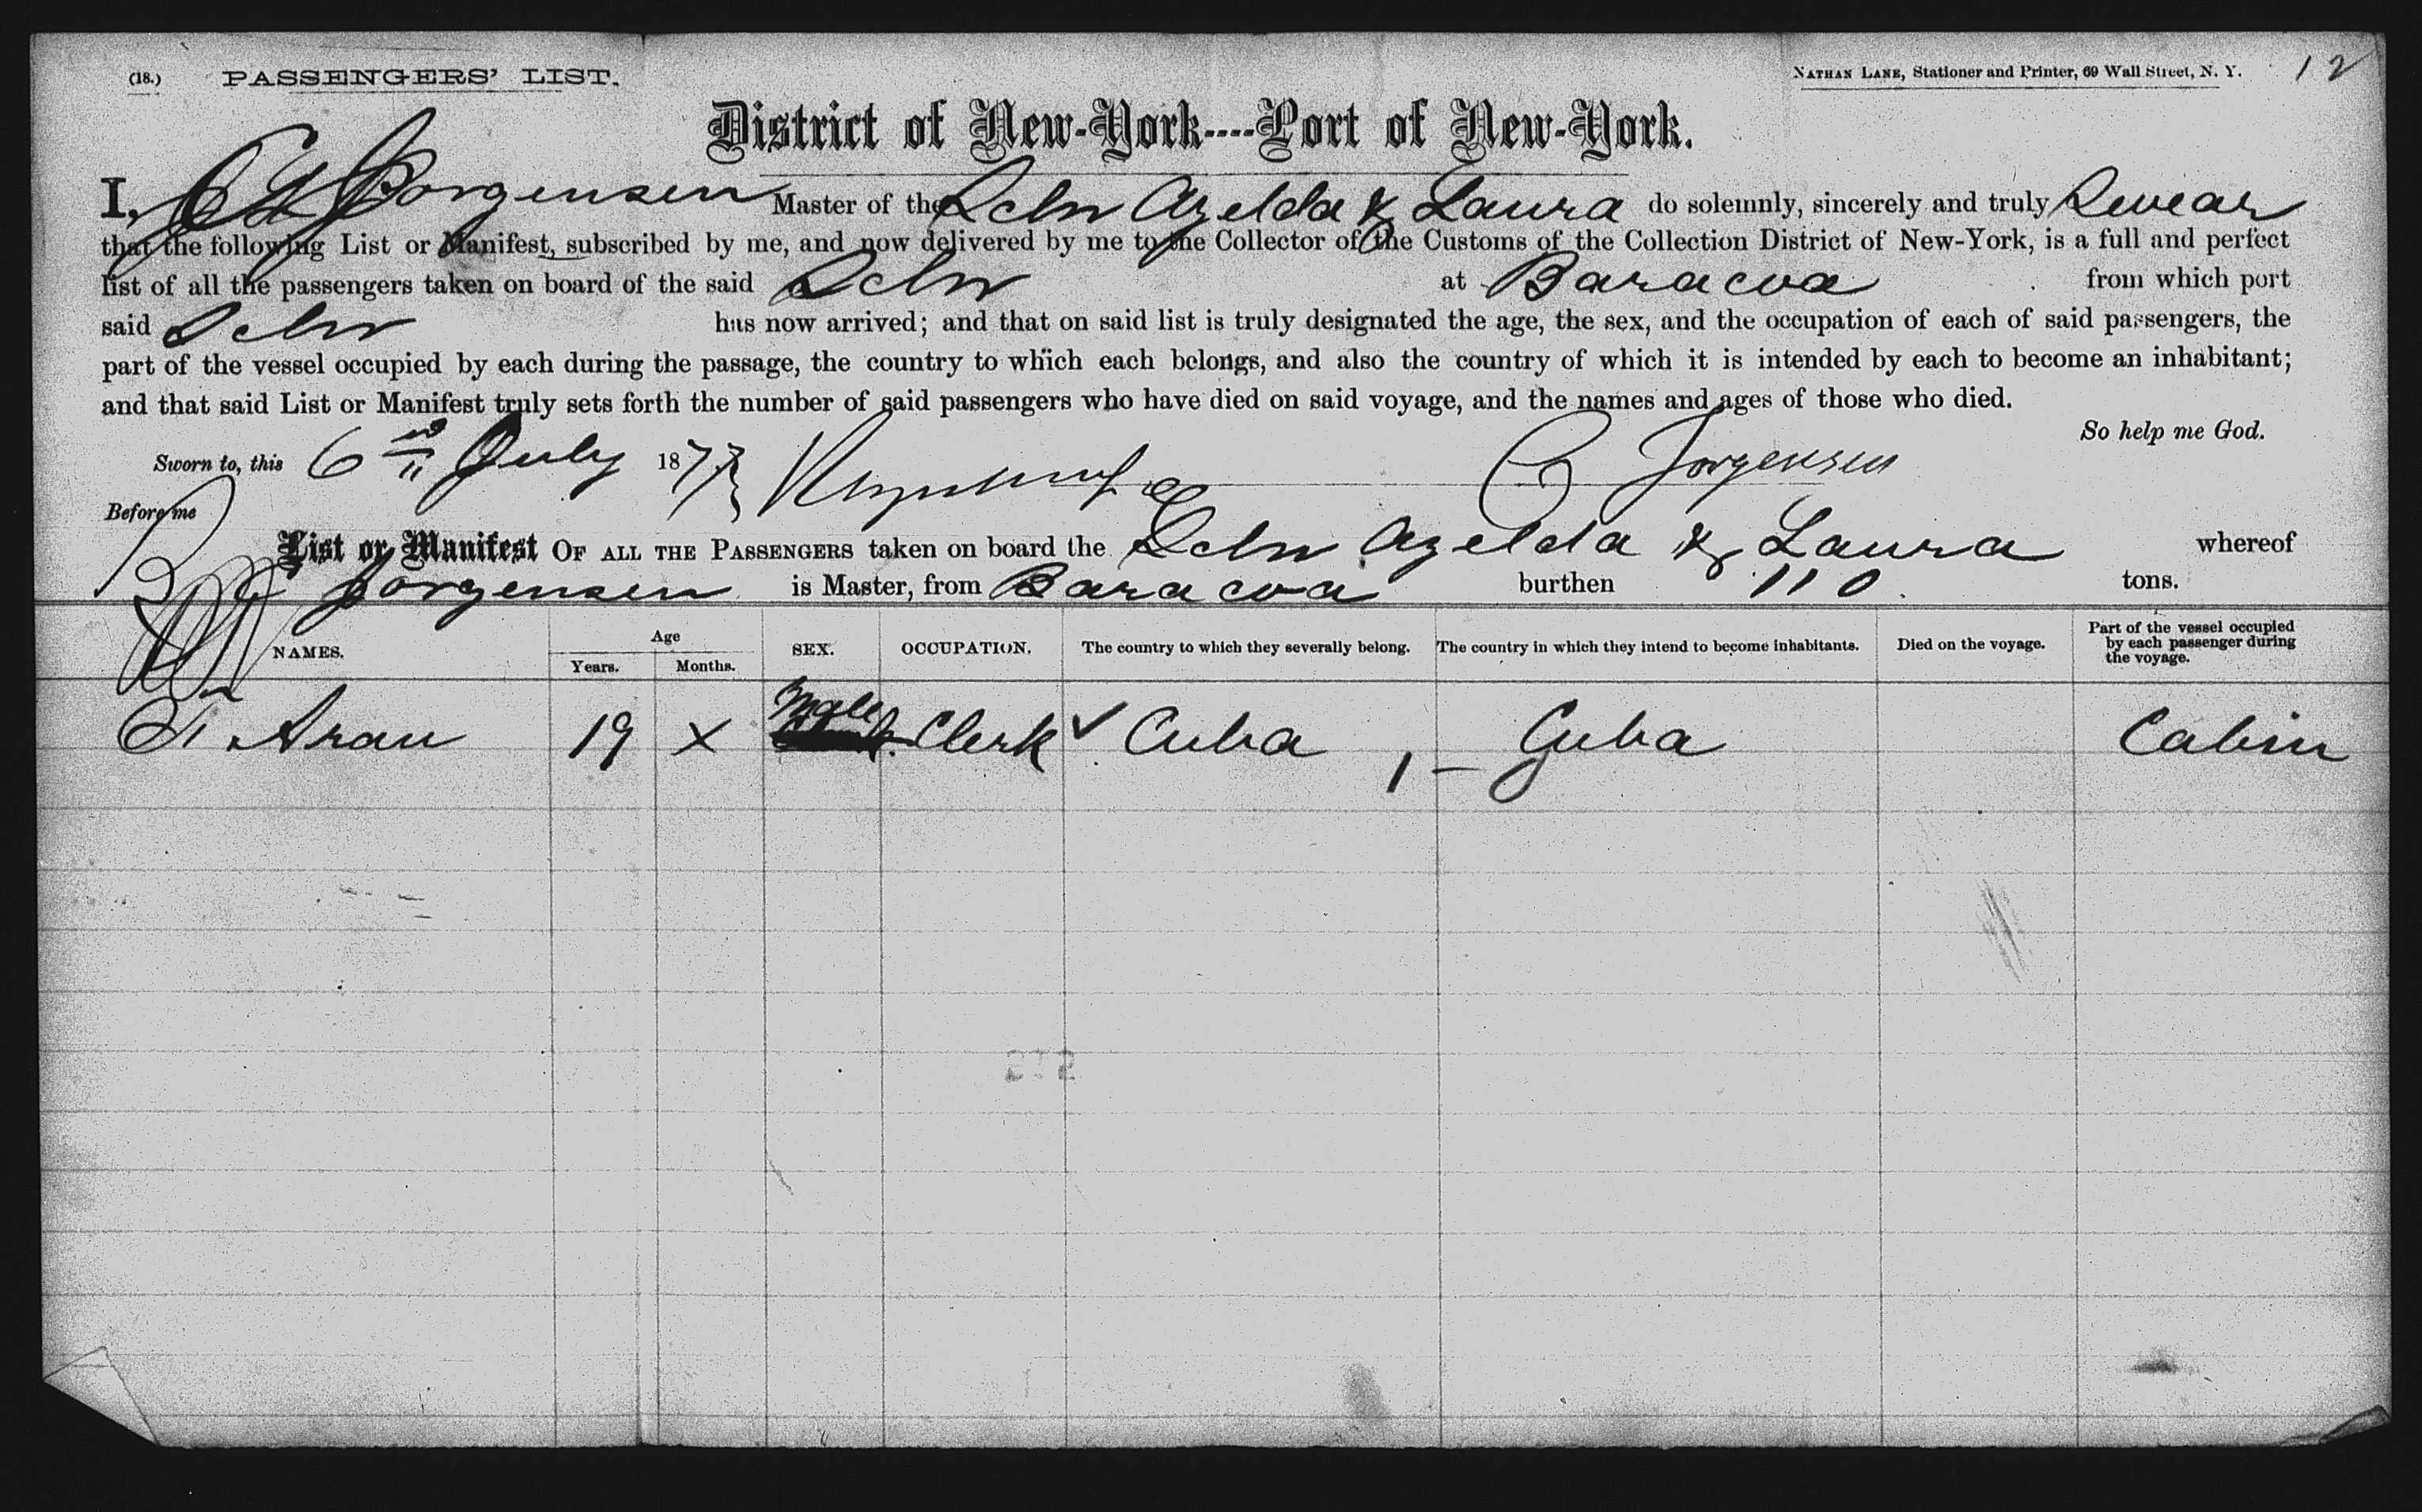 (18.) PASSENGERS' LIST. NATHAN LANE, Stationer and Printer, 69 Wall Street, N. Y. 12
District of New-York----Port of New-York.
I, Jorgensen Master of the Schr Azelda & Laura do solemnly, sincerely and truly Swear
that the following List or Manifest, subscribed by me, and now delivered by me to the Collector of the Customs of the Collection District of New-York, is a full and perfect
list of all the passengers taken on board of the said Schr at Baracoa from which port
said Schr has now arrived; and that on said list is truly designated the age, the sex, and the occupation of each of said passengers, the
part of the vessel occupied by each during the passage, the country to which each belongs, and also the country of which it is intended by each to become an inhabitant;
and that said List or Manifest truly sets forth the number of said passengers who have died on said voyage, and the names and ages of those who died.
So help me God.
Sworn to, this 6th July 1877 C Jorgensen
Before me
List or Manifest OF ALL THE PASSENGERS taken on board the Schr Azelda & Laura whereof
Jorgensen is Master, from Baracoa burthen 110 tons.
NAMES. Age Years. Months. SEX. OCCUPATION. The country to which they severally belong. The country in which they intend to become inhabitants. Died on the voyage. Part of the vessel occupied by each passenger during the voyage.
F. Arau 19 x Male Clerk ✓ Cuba 1 — Cuba Cabin
272